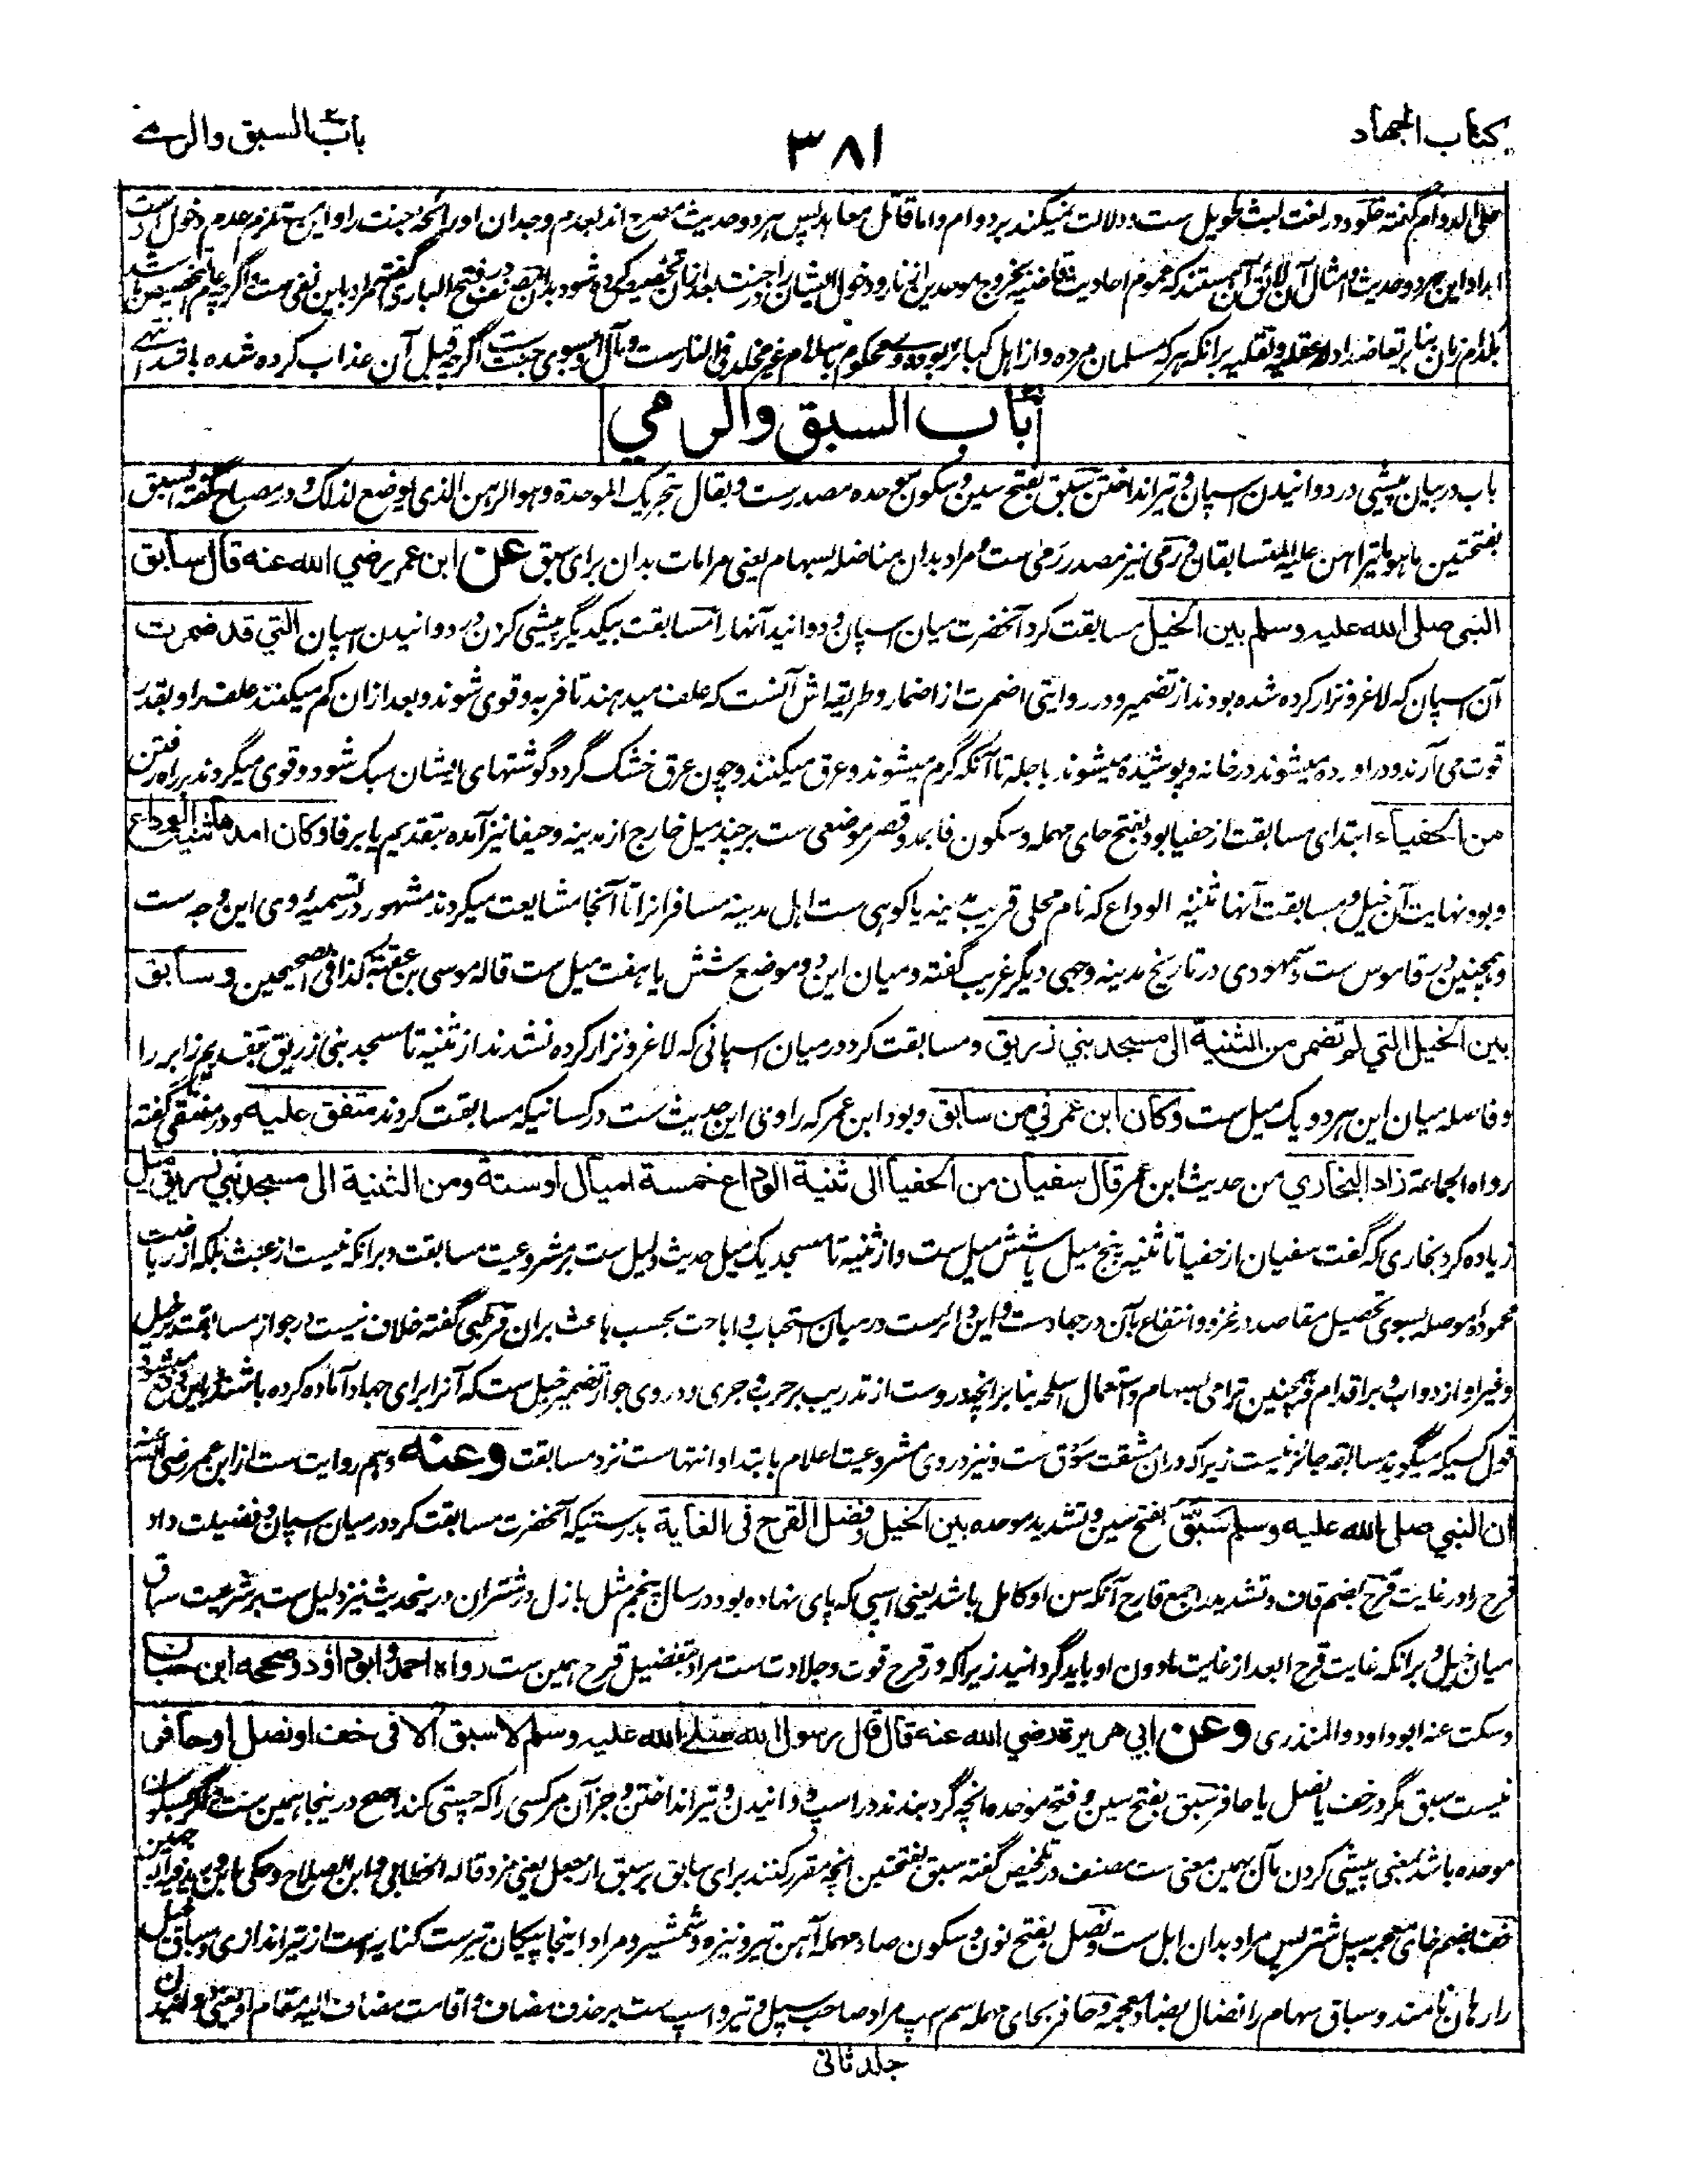 کتاب الجهاد
۳۸۱
باب السبق والرمے
علی الدوام گفته خلود در لغت لبث طویل ست و دلالت نمیکند بر دوام واما قاتل معاهد پس هر دو حدیث مصرح اند بعدم وجدان او رائحهٔ جنت را و این مستلزم عدم دخول است
ایراد این هر دو حدیث و امثال آن لائق آن هستند که عموم احادیث قاضیه بخروج موحدین از نار و دخول ایشان در جنت بعد ازان تخصیص کرده شود بدان مصنف در فتح الباری گفته مراد باین نفی ست و اگرچه عام تخصیص
بکدام زمان بنا بر تعاضد ادله عقلیه و نقلیه بر انکه هر که مسلمان مرده و از اهل کبائر بوده وے محکوم باسلام غیر مخلد فی النار ست و مآل او بسوی جنت ست اگرچه قبل آن عذاب کرده شده باشد انتہے
باب السبق والرمي
باب در بیان پیشی در دوانیدن اسپان و تیر انداختن سبق بفتح سین و سکون موحده مصدر ست و یقال بتحریک الموحدة وهو الرهن الذی یوضع لذلک و در مصباح گفته السبق
بفتحتین ما هو یتراهن علیه المتسابقان و رمی نیز مصدر رمی ست و مراد بدان مناضله بسهام یعنی مرامات بدان برای سبق عن ابن عمر رضي الله عنه قال سابق
النبی صلی الله علیه وسلم بین الخیل مسابقت کرد آنحضرت میان اسپان و دوانید آنها را مسابقت بیکدیگر پیشی کردن در دوانیدن اسپان التي قد ضمرت
آن اسپان که لاغر و نزار کرده شده بودند از تضمیر و در روایتی اضمرت از اضمار و طریقه اش آنست که علف میدهند تا فربه و قوی شوند و بعد ازان کم میکنند علف را و بقدر
قوت می آرند و در آورده میشوند در خانه و پوشیده میشوند باجله تا آنکه گرم میشوند و عرق میکنند و چون عرق خشک گردد گوشتهای ایشان سبک شود و قوی میگردند بر راه رفتن
من الحفیاء ابتدای مسابقت از حفیا بود بفتح حای مهمله و سکون فا بمد و قصر موضعی ست بر چند میل خارج از مدینه و حیفا نیز آمده بتقدیم یا بر فا وکان امدها ثنیة الوداع
و بود نهایت آن خیل و مسابقت آنها ثنیه الوداع که نام محلی قریب مدینه یا کوهی ست اهل مدینه مسافرانرا تا آنجا مشایعت میکردند مشهور در تسمیهٔ وی این وجه ست
و همچنین در قاموس ست و سمهودی در تاریخ مدینه وجهی دیگر غریب گفته و میان این دو موضع شش یا هفت میل ست قاله موسی بن عقبة کذا فی الصحیحین و سابق
بین الخیل التي لم تضمر من الثنیة الی مسجد بني زریق و مسابقت کرد در میان اسپانی که لاغر و نزار کرده نشدند از ثنیه تا مسجد بنی زریق بتقدیم زا بر را
و فاصله میان این هر دو یک میل ست وکان ابن عمر في من سابق و بود ابن عمر که راوی این حدیث ست در کسانیکه مسابقت کردند متفق علیه و در منتقی گفته
رواه الجماعة زاد البخاري من حدیث ابن عمر قال سفیان من الحفیا الی ثنیة الوداع خمسة امیال او ستة ومن الثنیة الی مسجد بني زریق میل
زیاده کرد بخاری که گفت سفیان از حفیا تا ثنیه پنج میل یا شش میل ست و از ثنیه تا مسجد یک میل حدیث دلیل ست بر مشروعیت مسابقت و بر انکه نیست از عبث بلکه از ریاضت
محموده موصله بسوی تحصیل مقاصد در غزو و انتفاع بآن در جهاد ست و این دائر ست در میان استحباب و اباحت بحسب باعث بران قرطبی گفته خلاف نیست در جواز مسابقت بر خیل
و غیر او از دواب و بر اقدام و همچنین ترامی بسهام و استعمال اسلحه بنا بر آنچه در وست از تدریب بر حرب و جری و در وی جواز تضمیر خیل ست که آنرا برای جهاد آماده کرده باشند و باین دفع میشود
قول کسیکه میگوید مسابقه جائز نیست زیرا که دران مشقت سوق ست و نیز در وی مشروعیت اعلام بابتدا و انتهاست نزد مسابقت وعنه و هم روایت ست از ابن عمر رضی الله عنه
ان النبي صلی الله علیه وسلم سبق بفتح سین و تشدید موحده بین الخیل وفضل القرح فی الغایة بدرستیکه آنحضرت مسابقت کرد در میان اسپان و فضیلت داد
قرح را در غایت قرح بضم قاف و تشدید را جمع قارح آنکه سن او کامل باشد یعنی اسپی که پای نهاده بود در سال پنجم مثل بازل در شتران درینحدیث نیز دلیل ست بر شرعیت سباق
میان خیل و بر انکه غایت قرح ابعد از غایت مادون او باید گردانید زیرا که در قرح قوت و جلادت ست مراد بتفضیل قرح همین ست رواه احمد و ابو داؤد وصححه ابن حبان
وسکت عنه ابو داود والمنذری وعن ابي هریرة رضي الله عنه قال قال رسول الله صلی الله علیه وسلم لا سبق الا فی خف او نصل او حافر
نیست سبق مگر در خف یا نصل یا حافر سبق بفتح سین و فتح موحده مآنچه گرو بندند در اسپ دوانیدن و تیر انداختن و جز آن مر کسی را که چستی کند اصح درینجا همین ست و اگر بسکون
موحده باشد بمعنی پیشی کردن مآل بهمین معنی ست مصنف در تلخیص گفته سبق بفتحتین آنچه مقرر کنند برای سابق بر سبق از جعل یعنی مزد قاله الخطابی و ابن الصلاح و حکی ابن درید فیه الوجهین
خف بضم خای معجمه سپل شتر پس مراد بدان ابل ست و نصل بفتح نون و سکون صاد مهمله آهن تیر و نیزه و شمشیر و مراد اینجا پیکان تیر ست کنایه است از تیر اندازی و سباق خیل
را رهان نامند و سباق سهام را نضال بضاد معجمه و حافر بحای مهمله سم اسپ مراد صاحب سپل و تیر و اسپ ست بر حذف مضاف و اقامت مضاف الیه مقام او یعنی دوانیدن
جلد ثانی